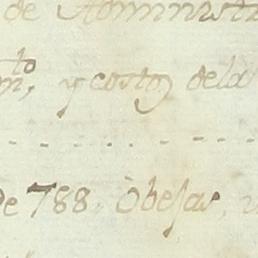 de Administra
mto, y costos dela
de 788 Obejas,